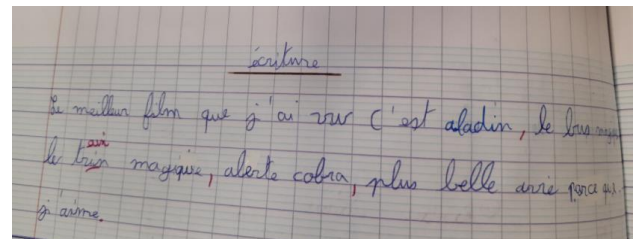 écriture
Le meilleur film que j'ai vu c'est aladin, le bus
le train magique, alerte cobra, plus belle avie parce que
j'aime.